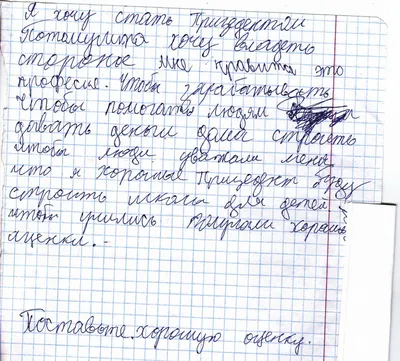 Я хочу стать Призедентом
Потомушта хочу владеть
стороное мне нравита это
професие. Чтобы зарабатывать
Чтобы помогать людям
давать деньги дома строить
штобы люди уважали меня
што я хороший Призедент буду
строить школы для детей
штобы училис получали хорош
аценки.
Поставьте хорошую оценку.